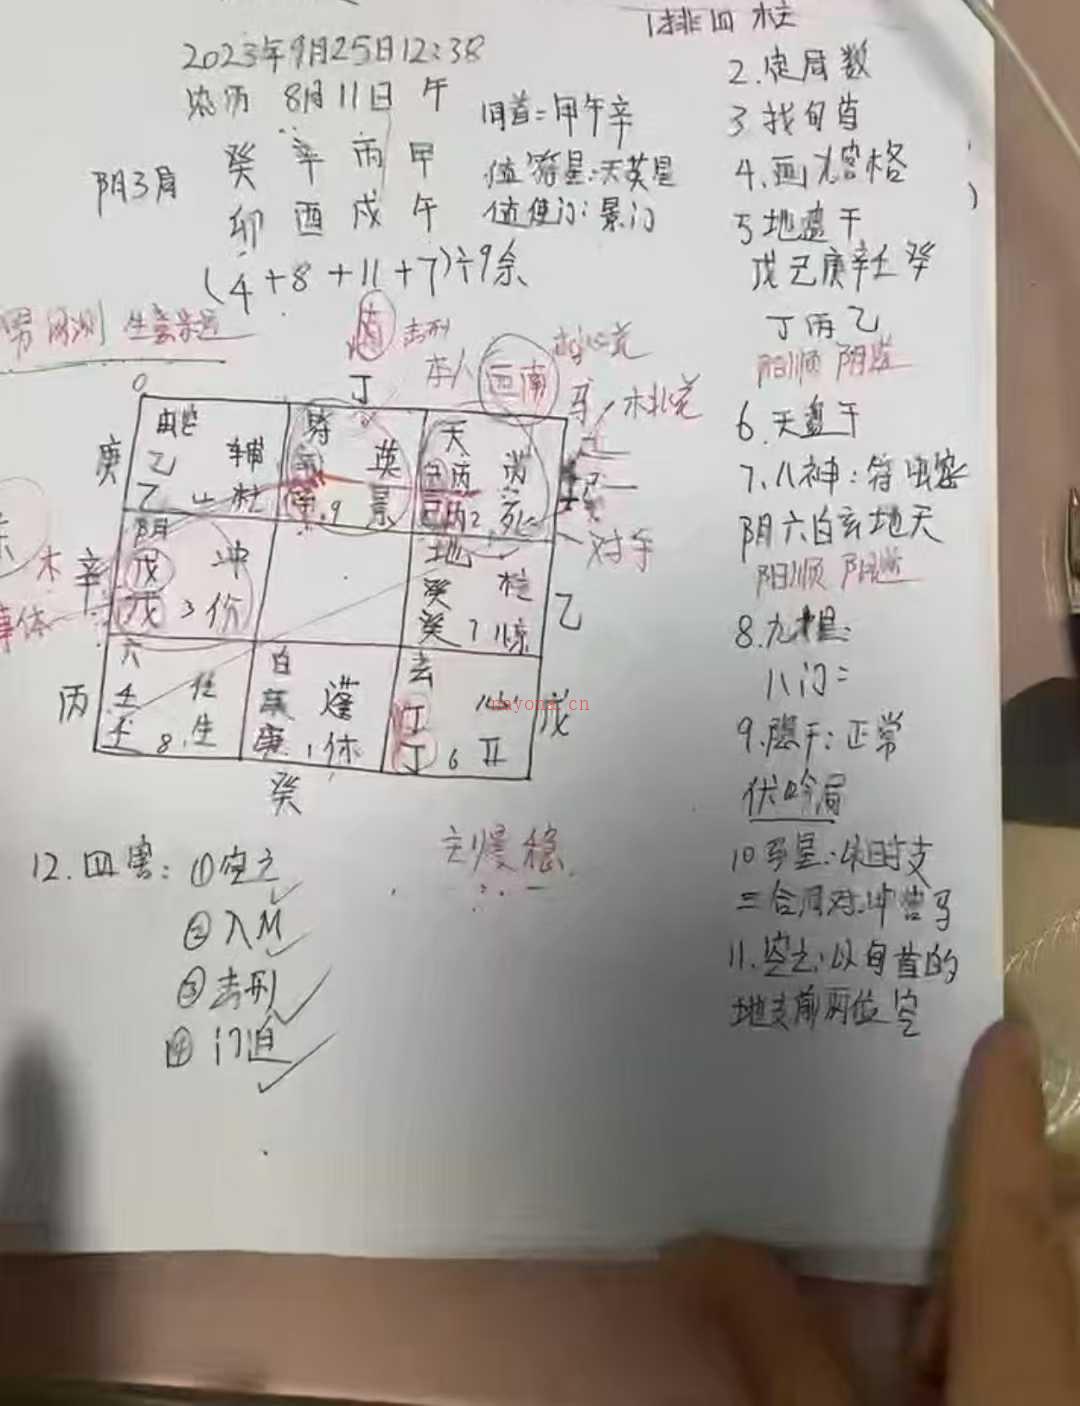 2023年9月25日12:38
农历 8月11日 午
癸 辛 丙 甲
卯 酉 戌 午
阴3局
旬首=甲午辛
值符星:天英星
值使门:景门
(4+8+11+7)÷9余
男 网测 生意
击刑
本人
西南
马
对手
事体
丁
庚
蛇
乙 辅
乙 4 杜
英
9 景
天
丙
己丙2 死
辛
阴
戊 冲
戊 3 伤
地
癸 柱
癸 7 惊
乙
丙
六
壬 任
壬 8 生
白
庚 蓬
庚 1 休
玄
丁 心
丁 6 开
戊
癸
nayona.cn
主慢 稳
12.四害:①空亡
②入M
③击刑
④门迫
1排四柱
2.定局数
3.找旬首
4.画九宫格
5地盘干
戊己庚辛壬癸
丁丙乙
阳顺 阴逆
6.天盘干
7.八神:符蛇
阴六白玄地天
阳顺 阴逆
8.九星:
八门=
9.隐干:正常
伏吟局
10马星:时支
三合局对冲
11.空亡:以旬首的
地支前两位空